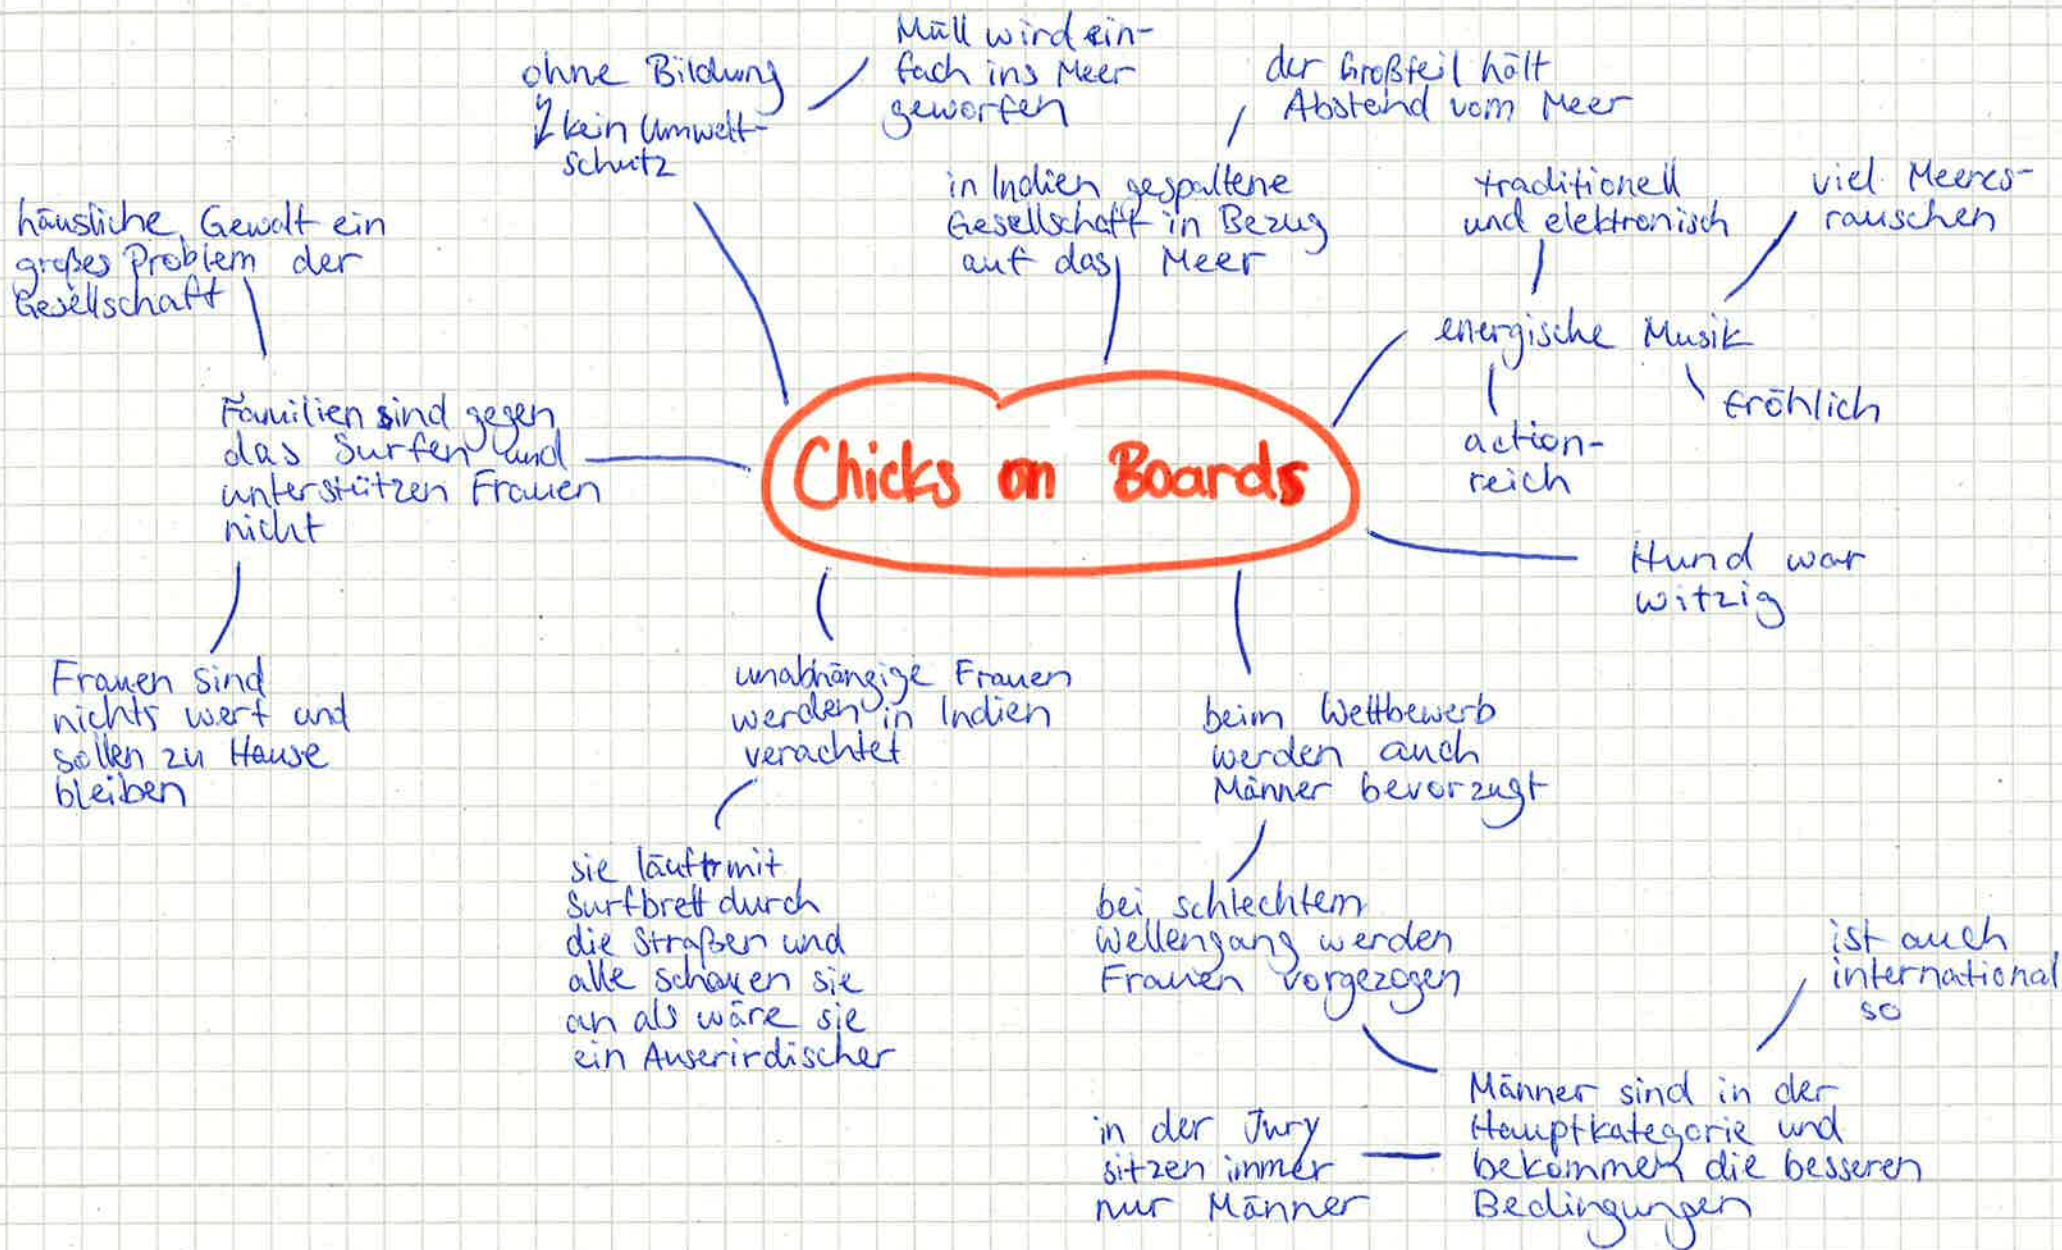 ohne Bildung
kein Umwelt-
schutz
Müll wird ein-
fach ins Meer
geworfen
der Großteil hält
Abstand vom Meer
in Indien gespaltene
Gesellschaft in Bezug
auf das Meer
traditionell
und elektronisch
viel Meeres-
rauschen
energische Musik
action-
reich
fröhlich
häusliche Gewalt ein
großes Problem der
Gesellschaft
Familien sind gegen
das Surfen und
unterstützen Frauen
nicht
Frauen sind
nichts wert und
sollen zu Hause
bleiben
Chicks on Boards
Hund war
witzig
unabhängige Frauen
werden in Indien
verachtet
sie läuft mit
Surfbrett durch
die Straßen und
alle schauen sie
an als wäre sie
ein Auserirdischer
beim Wettbewerb
werden auch
Männer bevorzugt
bei schlechtem
Wellengang werden
Frauen vorgezogen
ist auch
international
so
Männer sind in der
Hauptkategorie und
bekommen die besseren
Bedingungen
in der Jury
sitzen immer
nur Männer